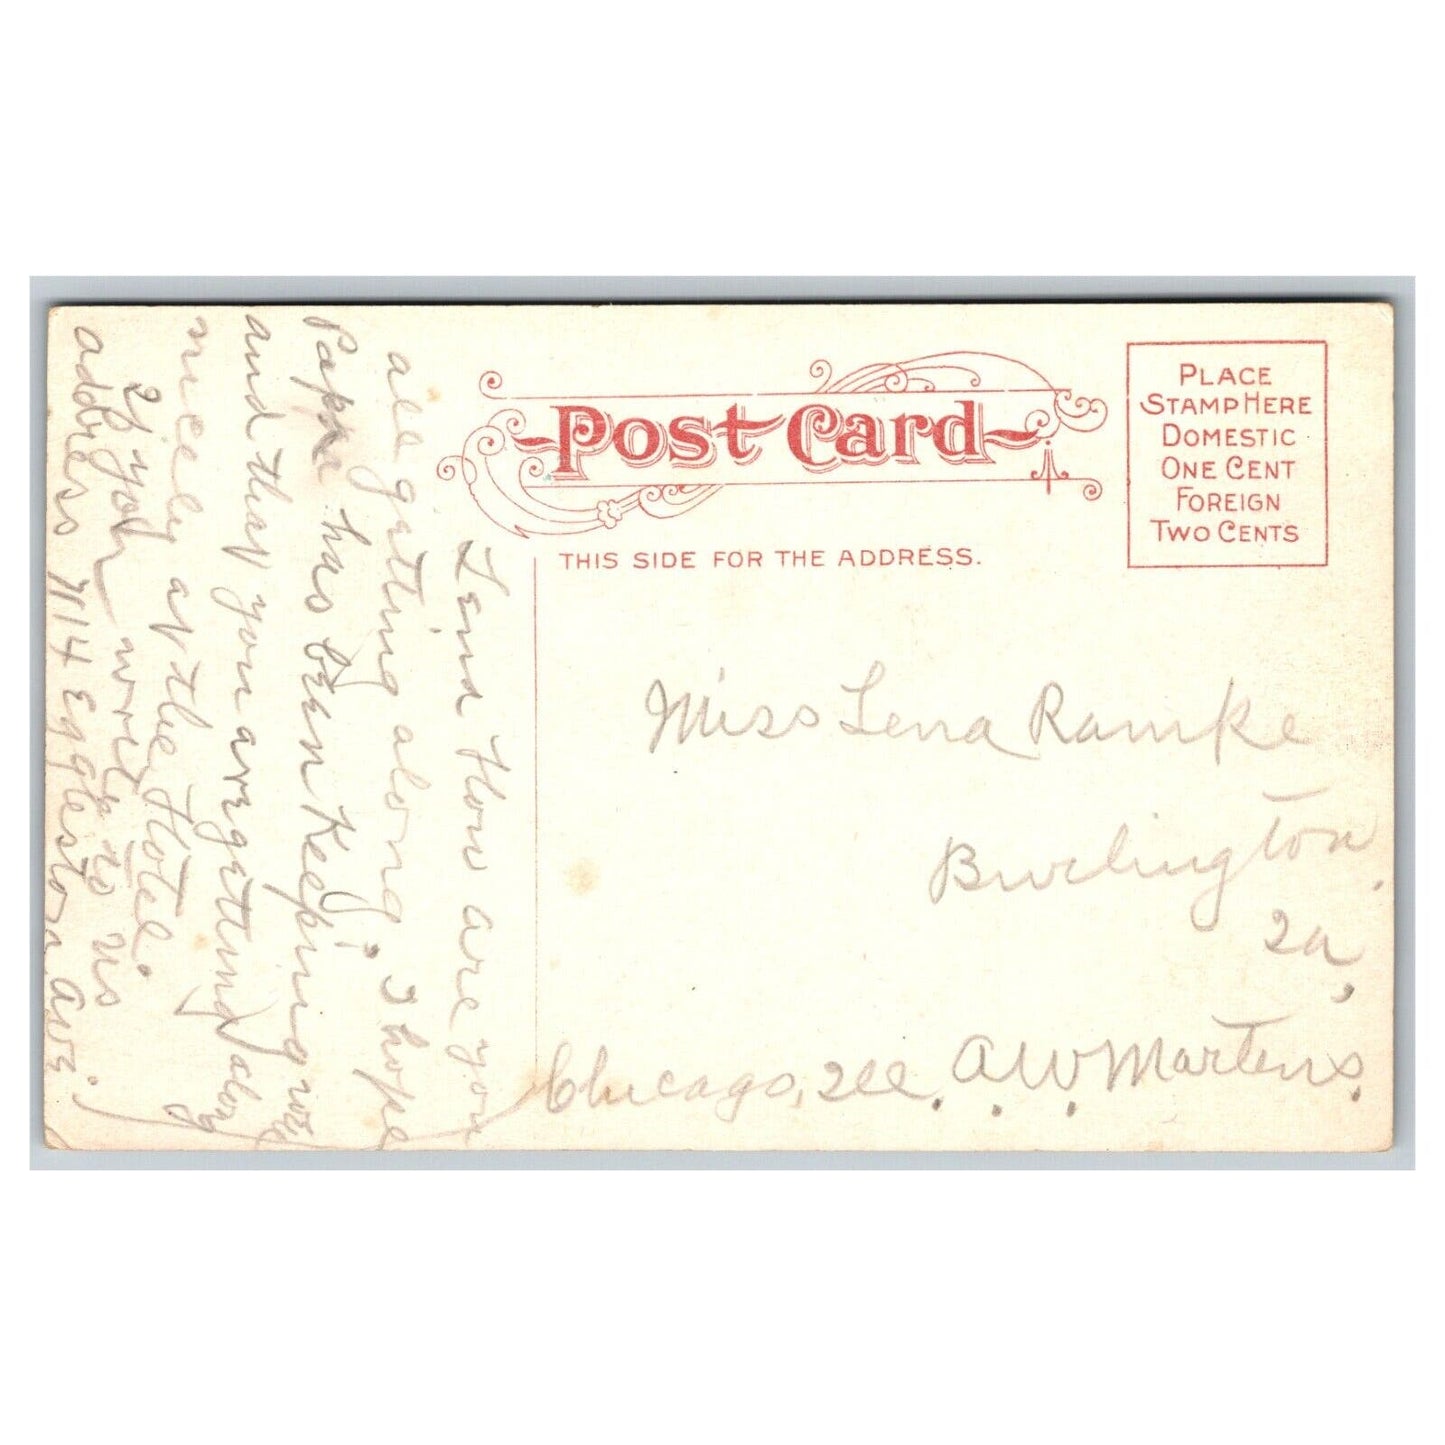 Post Card
PLACE
STAMP HERE
DOMESTIC
ONE CENT
FOREIGN
TWO CENTS
THIS SIDE FOR THE ADDRESS.
Leina How are you
all getting along? I hope
Papa has been Keeping well
and that you are getting along
nicely at the Hotel.
If you write to us
address 7114 Eggleston Ave.
Miss Lena Ramke
Burlington,
Ia,
Chicago, Ill. A. W. Martens.